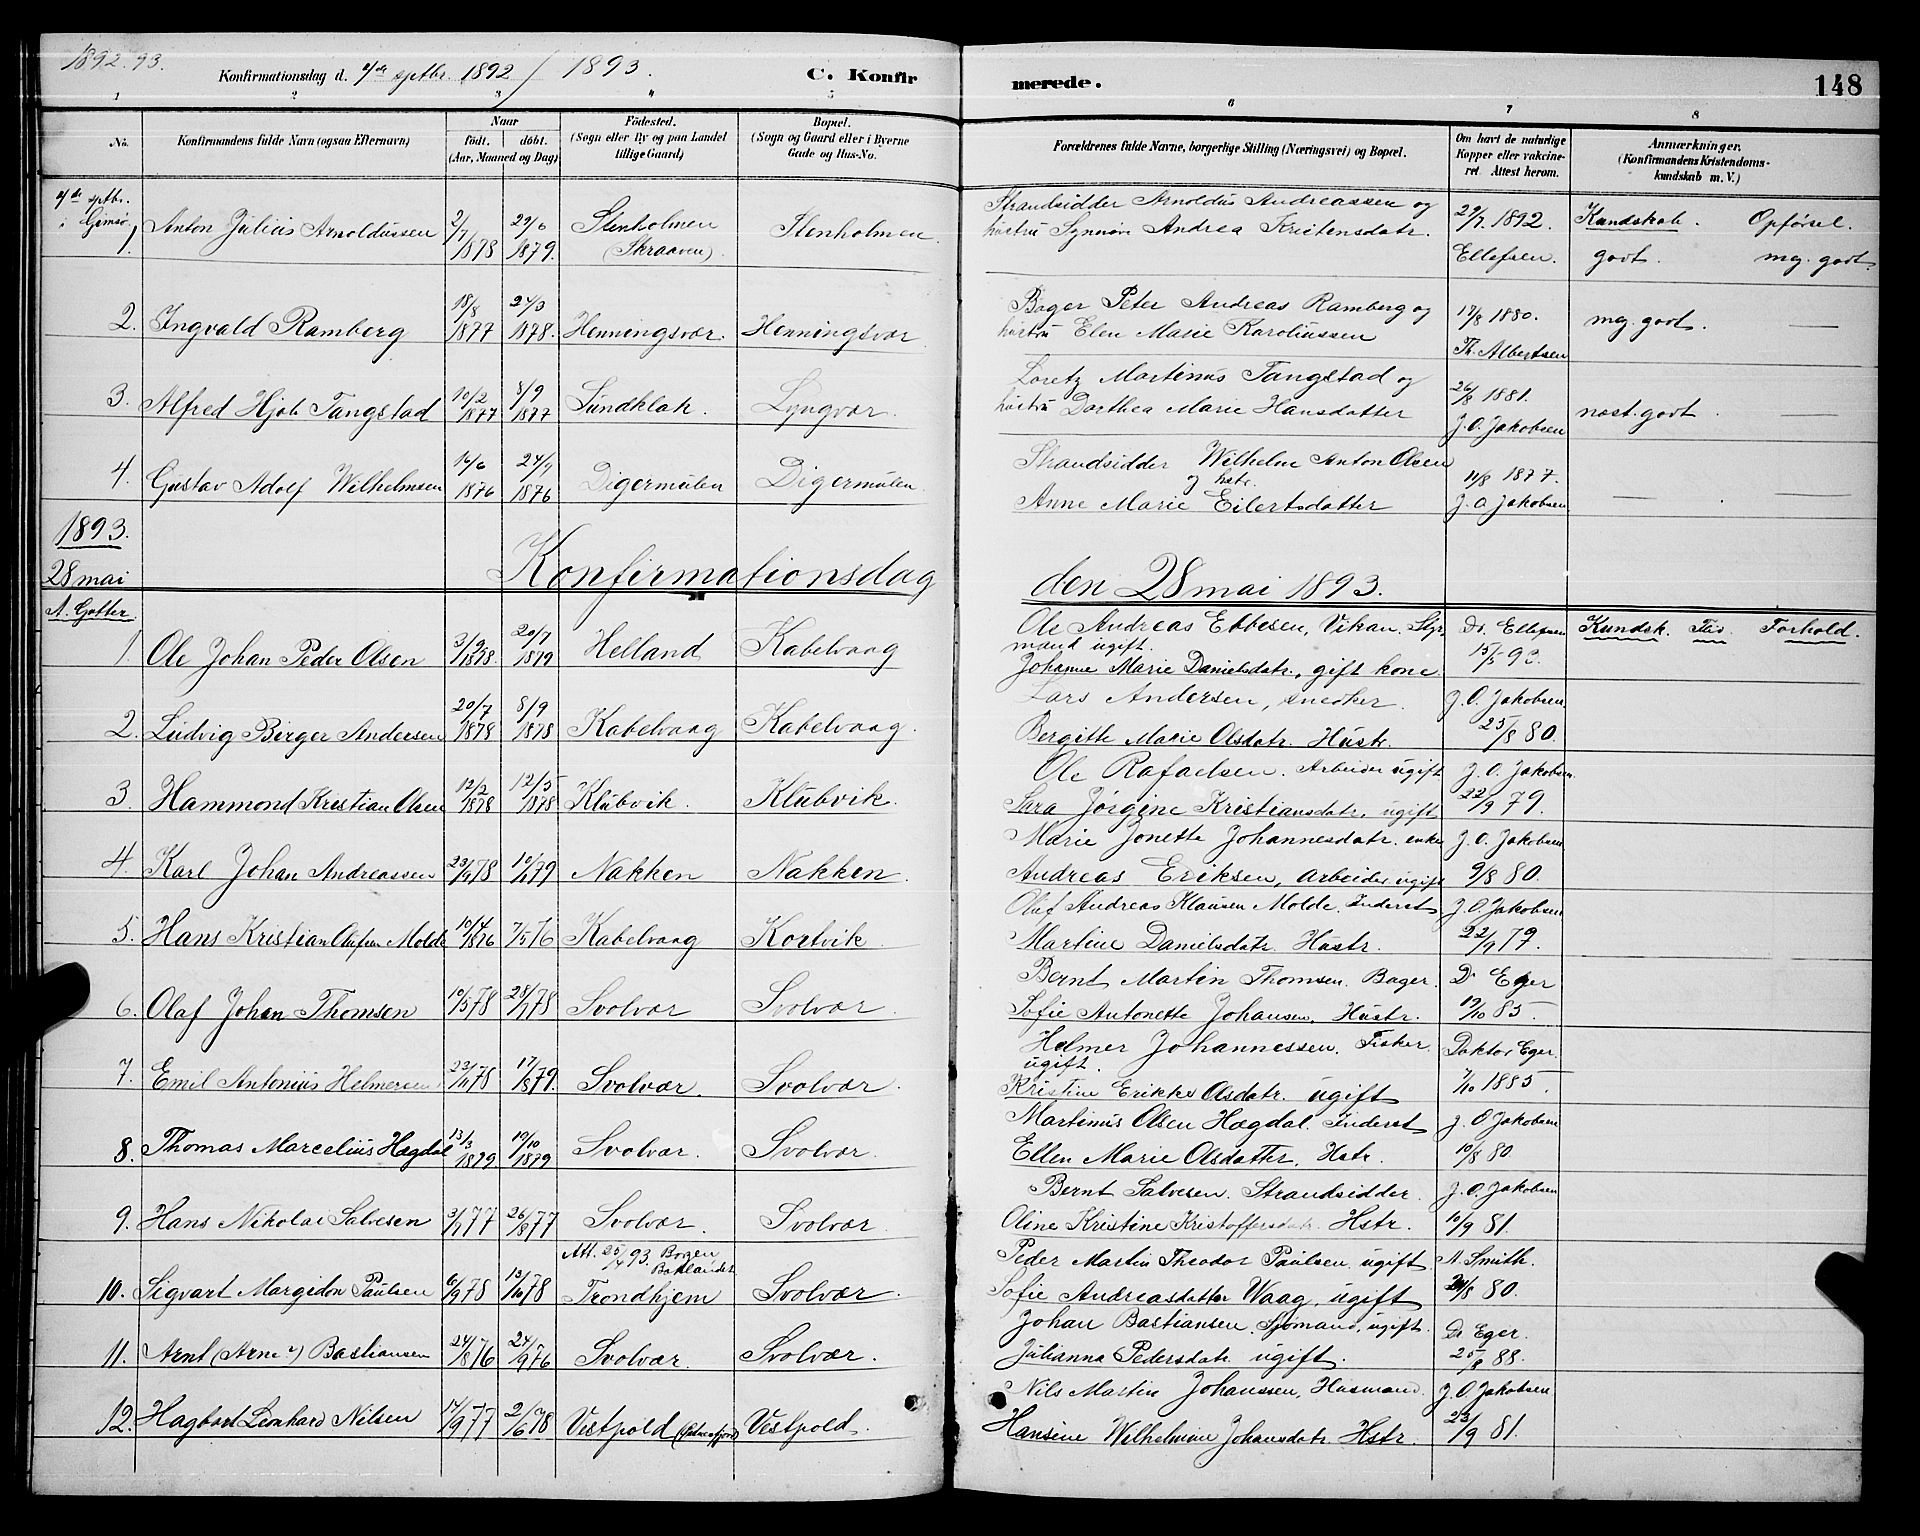 1892.93.
Konfirmationsdag d. 4/de sptbr. 1892 / 1893.
C. Konfir
merede.
148
1 2 3 4 5 6 7 8
No.
Konfirmandens fulde Navn (ogsaa Efternavn)
Naar
født. døbt.
(Aar, Maaned og Dag)
Fødested.
(Sogn eller By og paa Landet
tillige Gaard)
Bopæl.
(Sogn og Gaard eller i Byerne
Gade og Hus-No.
Forældrenes fulde Navne, borgerlige Stilling (Næringsvei) og Bopæl.
Om havt de naturlige
Kopper eller vakcine-
ret. Attest herom.
Anmærkninger.
(Konfirmandens Kristendoms-
kundskab m. V.)
4/de sptbr.
i Gimsø
1. Anton Julius Arnoldussen 2/7 1878 29/6 1879. Stenholmen (Skraaven) Stenholmen. Strandsidder Arnoldus Andreassen og
hustru Synnøv Andrea Kristensdatr. 29/7 1892. Ellefsen. Kundskab. godt. Opførsel. meg. godt
2. Ingvald Ramberg 18/8 1877 24/3 1878. Henningsvær. Henningsvær Bager Peter Andreas Ramberg og
hustru Elen Marie Karoliussen 17/8 1880. Th. Albertsen meg. godt. —
3. Alfred Hjob Tangstad 10/2 1877 8/9 1877 Sundklak. Lyngvær. Loretz Martinus Tangstad og
hustru Dorthea Marie Hansdatter 26/8 1881. J. O. Jakobsen nost. godt. —
4. Gustav Adolf Wilhelmsen 16/6 1876 24/9 1876 Digermulen Digermulen. Strandsidder Wilhelm Anton Olsen
og hstr.
Anne Marie Eilertsdatter 11/8 1877. J. O. Jakobsen — . —
1893.
28 mai Konfirmationsdag den 28 mai 1893.
A. Gutter
Kundsk. Flid Forhold.
1. Ole Johan Peder Olsen 3/9 1878. 20/7 1879 Helland Kabelvaag Ole Andreas Ebbesen, Vikan. Styr
mand ugift.
Johanne Marie Danielsdatr., gift kone Dr. Ellefsen 13/5 93.
2. Ludvig Birger Andersen 20/7 1878 8/9 1878 Kabelvaag Kabelvaag. Lars Andersen, snedker.
Bergitte Marie Olsdatr. Hustr. J. O. Jakobsen 25/8 80.
3. Hammond Kristian Olsen 12/2 1878 12/5 1878 Klubvik. Klubvik. Ole Rafaelsen. Arbeider ugift
Sara Jørgine Kristiansdatr. ugift J. O. Jakobsen 22/9 79.
4. Karl Johan Andreassen 23/9 78 10/1 79 Nakken Nakken. Marie Jonette Johannesdatr. enke
Andreas Eriksen, arbeider ugift J. O. Jakobsen 9/8 80.
5. Hans Kristian Olufsen Molde 10/4 1876 7/5 76 Kabelvaag Kortvik. Oluf Andreas Klausen Molde. Inderst
Martine Danielsdatr. Hustr. J. O. Jakobsen 22/9 79.
6. Olaf Johan Thomsen 10/5 78 28/7 78 Svolvær Svolvær. Bernt Martin Thomsen. Bager.
Sofie Antonette Johansen, Hustr. Dr Eger 19/10 85.
7. Emil Antonius Helmersen 23/10 78 17/8 79. Svolvær. Svolvær. Helmer Johannessen. Fisker.
ugift.
Kristine Erikke Olsdatr. ugift Doktor Eger. 7/10 1885.
8. Thomas Marcelius Hægdal 13/3 1879 19/10 1879 Svolvær. Svolvær. Martinus Olsen Hægdal. Inderst
Ellen Marie Olsdatter. Hstr. J. O Jakobsen 10/8 80.
9. Hans Nikolai Salvesen 3/7 77 26/8 77 Svolvær. Svolvær. Bernt Salvesen. Strandsidder.
Oline Kristine Kristoffersdatr. Hstr. J. O. Jakobsen 10/9 81.
10. Sigvart Margidon Paulsen 6/9 78 13/10 78 Att. 25/4 93. Bogen
Trondhjem Svolvær. Peder Martin Theodor Paulsen ugift
Sofie Andreasdatter Waag, ugift A. Smith. 24/8 80.
11. Arnt (Arne?) Bastiansen 24/8 76 24/9 76 Svolvær. Svolvær. Johan Bastiansen. Sjømand, ugift.
Julianna Pedersdatr. ugift. Dr Eger. 25/8 88.
12. Hagbart Leonhard Nilsen 17/9 77 2/6 78 Vestpold Vestpold. Nils Martin Johanssen, Husmand.
Hansine Wilhelmine Johansdatr. Hstr. J. O. Jakobsen 23/9 81.